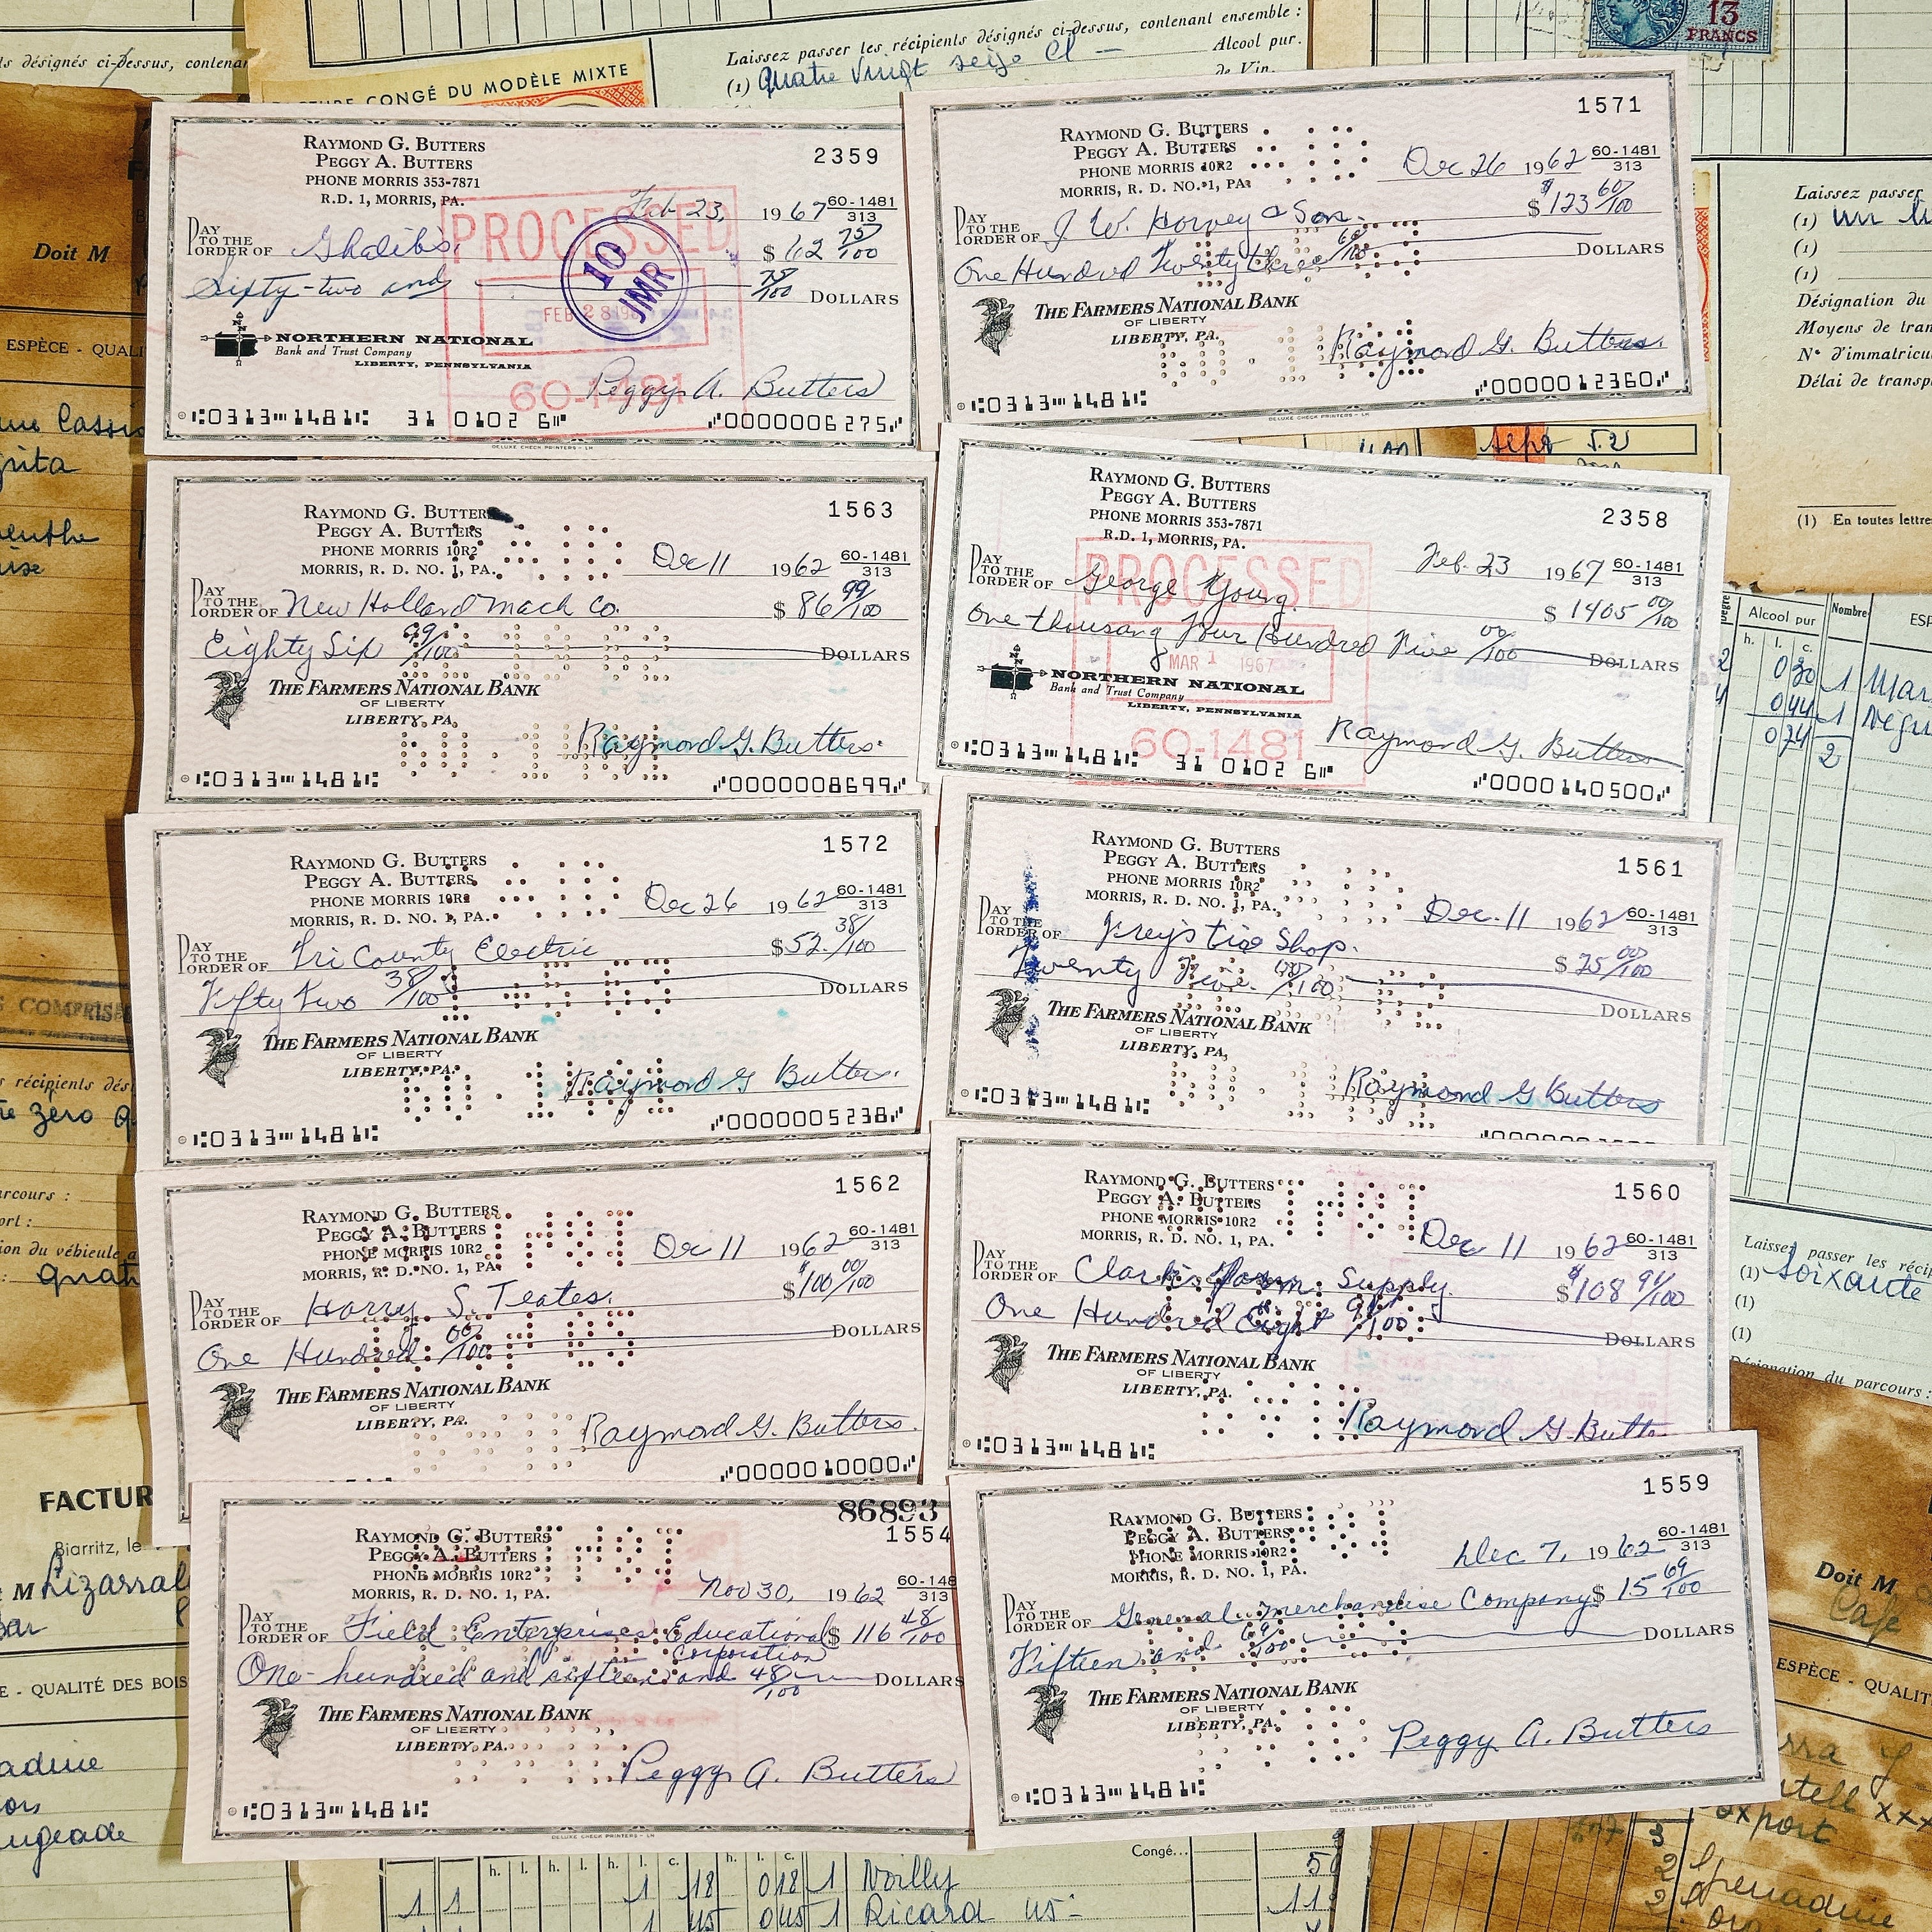 ls désignés ci-dessus, contenan
CONGÉ DU MODÈLE MIXTE
Laissez passer les récipients désignés ci-dessus, contenant ensemble :
(1) quatre vingt seize cl —
Alcool pur.
de Vin.
13
FRANCS
RAYMOND G. BUTTERS
PEGGY A. BUTTERS
PHONE MORRIS 353-7871
R.D. 1, MORRIS, PA.
2359
Feb 23, 1967
60-1481
313
PAY TO THE ORDER OF Ghalib's $ 62 75/100
Sixty-two and 75/100 DOLLARS
PROCESSED
FEB 28 196
10
JMR
60-1481
NORTHERN NATIONAL
Bank and Trust Company
LIBERTY, PENNSYLVANIA
Peggy A. Butters
0313 1481 31 0102 6 0000006275
DELUXE CHECK PRINTERS - LH
RAYMOND G. BUTTERS
PEGGY A. BUTTERS
PHONE MORRIS 10R2
MORRIS, R. D. NO. 1, PA.
1571
Dec 26 1962
60-1481
313
PAY TO THE ORDER OF J. W. Harvey & Son. $ 123 60/100
One Hundred Twenty three 60/100 DOLLARS
THE FARMERS NATIONAL BANK
OF LIBERTY
LIBERTY, PA.
Raymond G. Butters.
0313 1481 0000012360
DELUXE CHECK PRINTERS - LH
RAYMOND G. BUTTERS
PEGGY A. BUTTERS
PHONE MORRIS 10R2
MORRIS, R. D. NO. 1, PA.
1563
Dec 11 1962
60-1481
313
PAY TO THE ORDER OF New Holland Mach Co. $ 86 99/100
Eighty Six 99/100 DOLLARS
THE FARMERS NATIONAL BANK
OF LIBERTY
LIBERTY, PA.
Raymond G. Butters.
0313 1481 0000008699
RAYMOND G. BUTTERS
PEGGY A. BUTTERS
PHONE MORRIS 353-7871
R.D. 1, MORRIS, PA.
2358
Feb. 23 1967
60-1481
313
PAY TO THE ORDER OF George Young. $ 1405 00/100
One thousand four Hundred Five 00/100 DOLLARS
PROCESSED
MAR 1 1967
60-1481
NORTHERN NATIONAL
Bank and Trust Company
LIBERTY, PENNSYLVANIA
Raymond G. Butters
0313 1481 31 0102 6 0000140500
RAYMOND G. BUTTERS
PEGGY A. BUTTERS
PHONE MORRIS 10R2
MORRIS, R. D. NO. 1, PA.
1572
Dec 26 1962
60-1481
313
PAY TO THE ORDER OF Tri County Electric $ 52. 38/100
Fifty Two 38/100 DOLLARS
THE FARMERS NATIONAL BANK
OF LIBERTY
LIBERTY, PA.
Raymond G Butters.
0313 1481 0000005238
RAYMOND G. BUTTERS
PEGGY A. BUTTERS
PHONE MORRIS 10R2
MORRIS, R. D. NO. 1, PA.
1561
Dec. 11 1962
60-1481
313
PAY TO THE ORDER OF Shop. $ 25 00/100
Twenty Five. 00/100 DOLLARS
THE FARMERS NATIONAL BANK
OF LIBERTY
LIBERTY, PA.
Raymond G Butters
0313 1481
RAYMOND G. BUTTERS
PEGGY A. BUTTERS
PHONE MORRIS 10R2
MORRIS, R. D. NO. 1, PA.
1562
Dec 11 1962
60-1481
313
PAY TO THE ORDER OF Harry S. Teates. $ 100 00/100
One Hundred 00/100 DOLLARS
THE FARMERS NATIONAL BANK
OF LIBERTY
LIBERTY, PA.
Raymond G. Butters.
0000010000
RAYMOND G. BUTTERS
PEGGY A. BUTTERS
PHONE MORRIS 10R2
MORRIS, R. D. NO. 1, PA.
1560
Dec 11 1962
60-1481
313
PAY TO THE ORDER OF Clark's Farm Supply. $ 108 91/100
One Hundred Eight 91/100 DOLLARS
THE FARMERS NATIONAL BANK
OF LIBERTY
LIBERTY, PA.
Raymond G Butte
0313 1481
86893
RAYMOND G. BUTTERS
PEGGY A. BUTTERS
PHONE MORRIS 10R2
MORRIS, R. D. NO. 1, PA.
1554
Nov 30, 1962
60-148
313
PAY TO THE ORDER OF Field Enterprises Educational $ 116 48/100
Corporation
One-hundred and sixteen and 48/100 DOLLARS
THE FARMERS NATIONAL BANK
OF LIBERTY
LIBERTY, PA.
Peggy A. Butters
0313 1481
DELUXE CHECK PRINTERS - LH
RAYMOND G. BUTTERS
PEGGY A. BUTTERS
PHONE MORRIS 10R2
MORRIS, R. D. NO. 1, PA.
1559
Dec 7, 1962
60-1481
313
PAY TO THE ORDER OF General Merchandise Company $ 15 69/100
Fifteen and 69/100 DOLLARS
THE FARMERS NATIONAL BANK
OF LIBERTY
LIBERTY, PA.
Peggy A. Butters
0313 1481
DELUXE CHECK PRINTERS - LH
Doit M
ESPÈCE - QUALI
S COMPRIS
s récipients dés
zéro
arcours :
ort :
ion du véhicule a
quat
FACTUR
Biarritz, le
M Lizarral
E - QUALITÉ DES BOIS
Laissez passer
(1) un
(1)
(1)
Désignation du
Moyens de tran
N° d'immatricu
Délai de transp
(1) En toutes lettre
sept 52
Alcool pur
Nombre
ESP
h. l. c.
0 30 1 Mar
0 44 1
0 74 2
Laissez passer les récip
(1) soixante
(1)
(1)
Désignation du parcours :
Doit M
Café
ESPÈCE - QUALIT
export
Congé...
h. l. h. l. h. l. c. h. l. c.
1 1 1 18 018 1 Noilly
1 45 045 1 Ricard 45